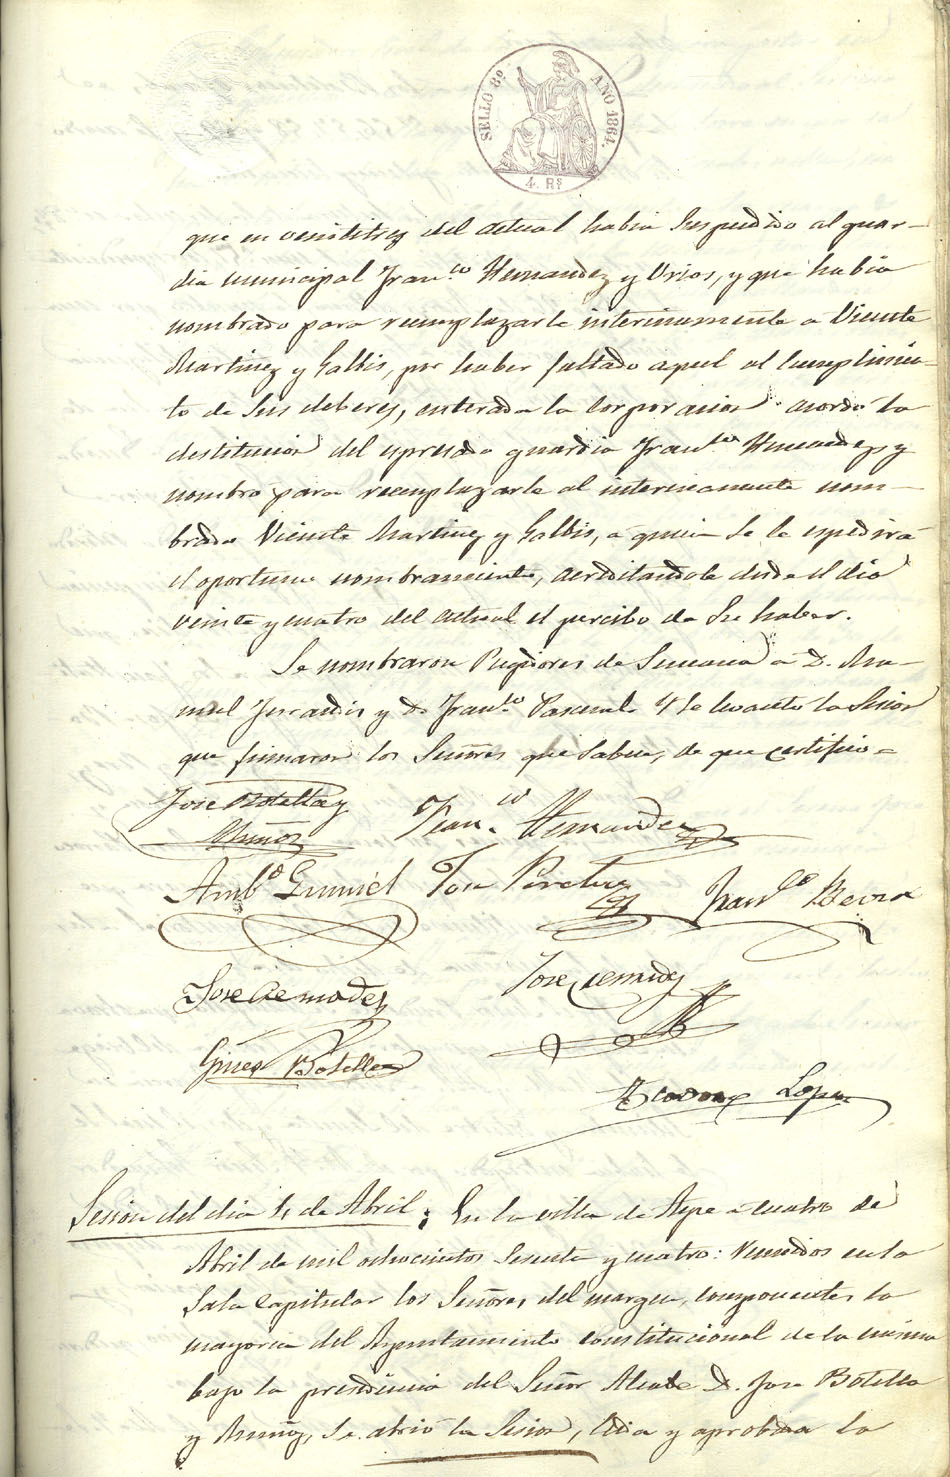 SELLO 8º AÑO 1864.
4. Rs
que en veintitres del actual habia suspendido al guar-
dia municipal Franco Hernandez y Urios, y que habia
nombrado para reemplazarle interinamente a Vicente
Martinez y Galbis, por haber faltado aquel al cumplimien-
to de sus deberes, enterada la Corporacion acordó la
destitucion del espresado guardia Franco Hernandez y
nombró para reemplazarle al interinamente nom-
brado Vicente Martinez y Galbis, a quien se le espedirá
el oportuno nombramiento, acreditandole desde el dia
veinte y cuatro del actual el percibo de su haber.
Se nombraron Regidores de Semana a D. Ma-
nuel Jurandis y D. Franco Pascual. Y se levantó la Sesion
que firmaron los Señores que saben, de que certifico=
Jose Botella y
Muñoz
Franco Hernandez
Ambo
Jose
Franco
Jose Cremades
Jose Cremades
Gines Botella
Lopez
Sesion del dia 4 de Abril; En la villa de Aspe a cuatro de
Abril de mil ochocientos sesenta y cuatro: reunidos en la
Sala Capitular los Señores del margen, componentes la
mayoria del Ayuntamiento constitucional de la misma
bajo la presidencia del Señor Alcalde D. Jose Botella
y Muñoz, se abrió la Sesion, leida y aprobada la